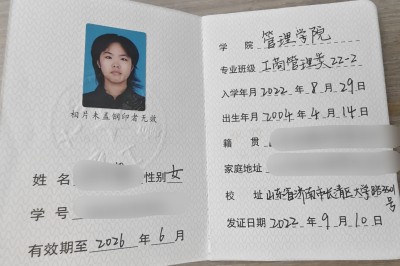 相片未盖钢印者无效
姓名 性别 女
学号
有效期至 2026 年 6 月
学院 管理学院
专业班级 工商管理类22-2
入学年月 2022 年 8 月 29 日
出生年月 2004 年 4 月 14 日
籍贯
家庭地址
校址 山东省济南市长清区大学路3501号
发证日期 2022 年 9 月 10 日